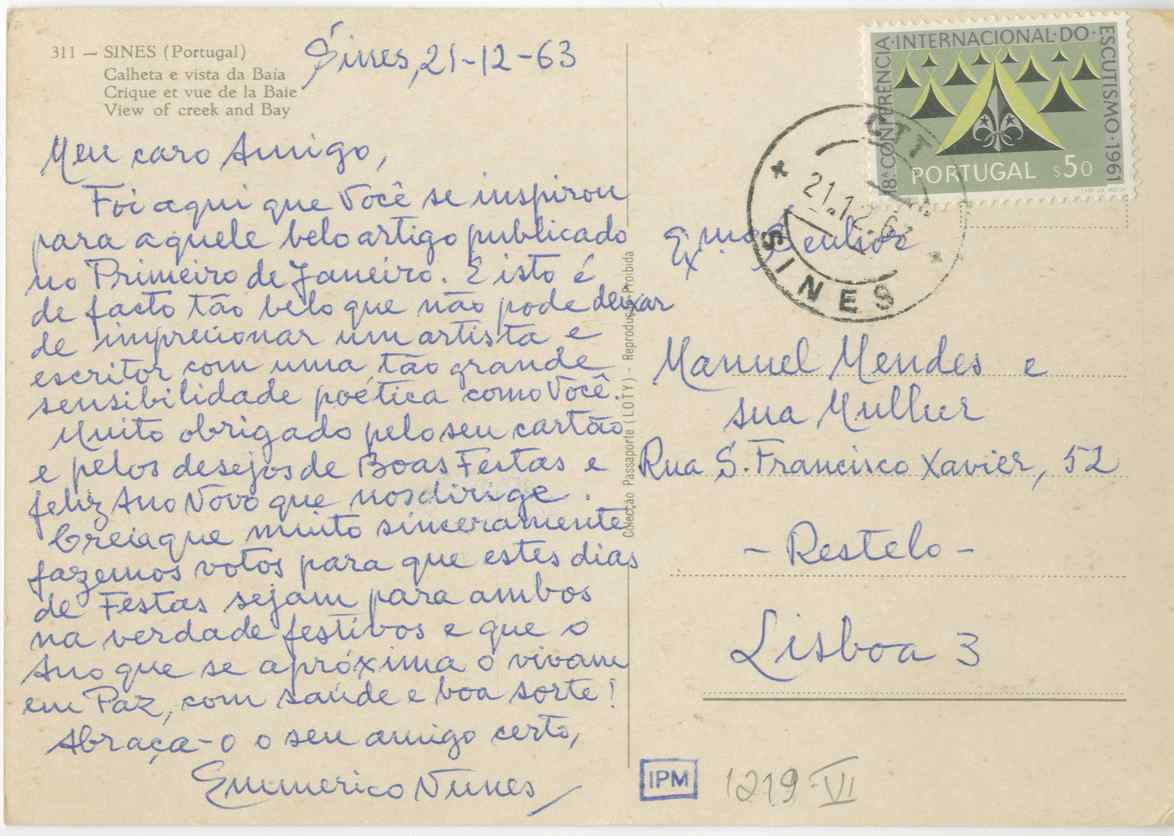 311 — SINES (Portugal)
Calheta e vista da Baía
Crique et vue de la Baie
View of creek and Bay
Sines, 21-12-63
Meu caro Amigo,
Foi aqui que Você se inspirou
para aquele belo artigo publicado
no Primeiro de Janeiro. E isto é
de facto tão belo que não pode deixar
de imprecionar um artista e
escritor com uma tão grande
sensibilidade poética como Você.
Muito obrigado pelo seu cartão
e pelos desejos de Boas Festas e
feliz Ano Novo que nos dirige.
Creia que muito sinceramente
fazemos votos para que estes dias
de Festas sejam para ambos
na verdade festivos e que o
Ano que se apróxima o vivam
em Paz, com saúde e boa sorte!
Abraça-o o seu amigo certo,
Emmerico Nunes
Colecção Passaporte (LOTY) - Reprodução Proibida
18ª CONFERÊNCIA INTERNACIONAL DO ESCUTISMO 1961
PORTUGAL $50
CTT
21.12.63
SINES
Manuel Mendes e
sua Mulher
Rua S. Francisco Xavier, 52
- Restelo -
Lisboa 3
IPM
1219-VI